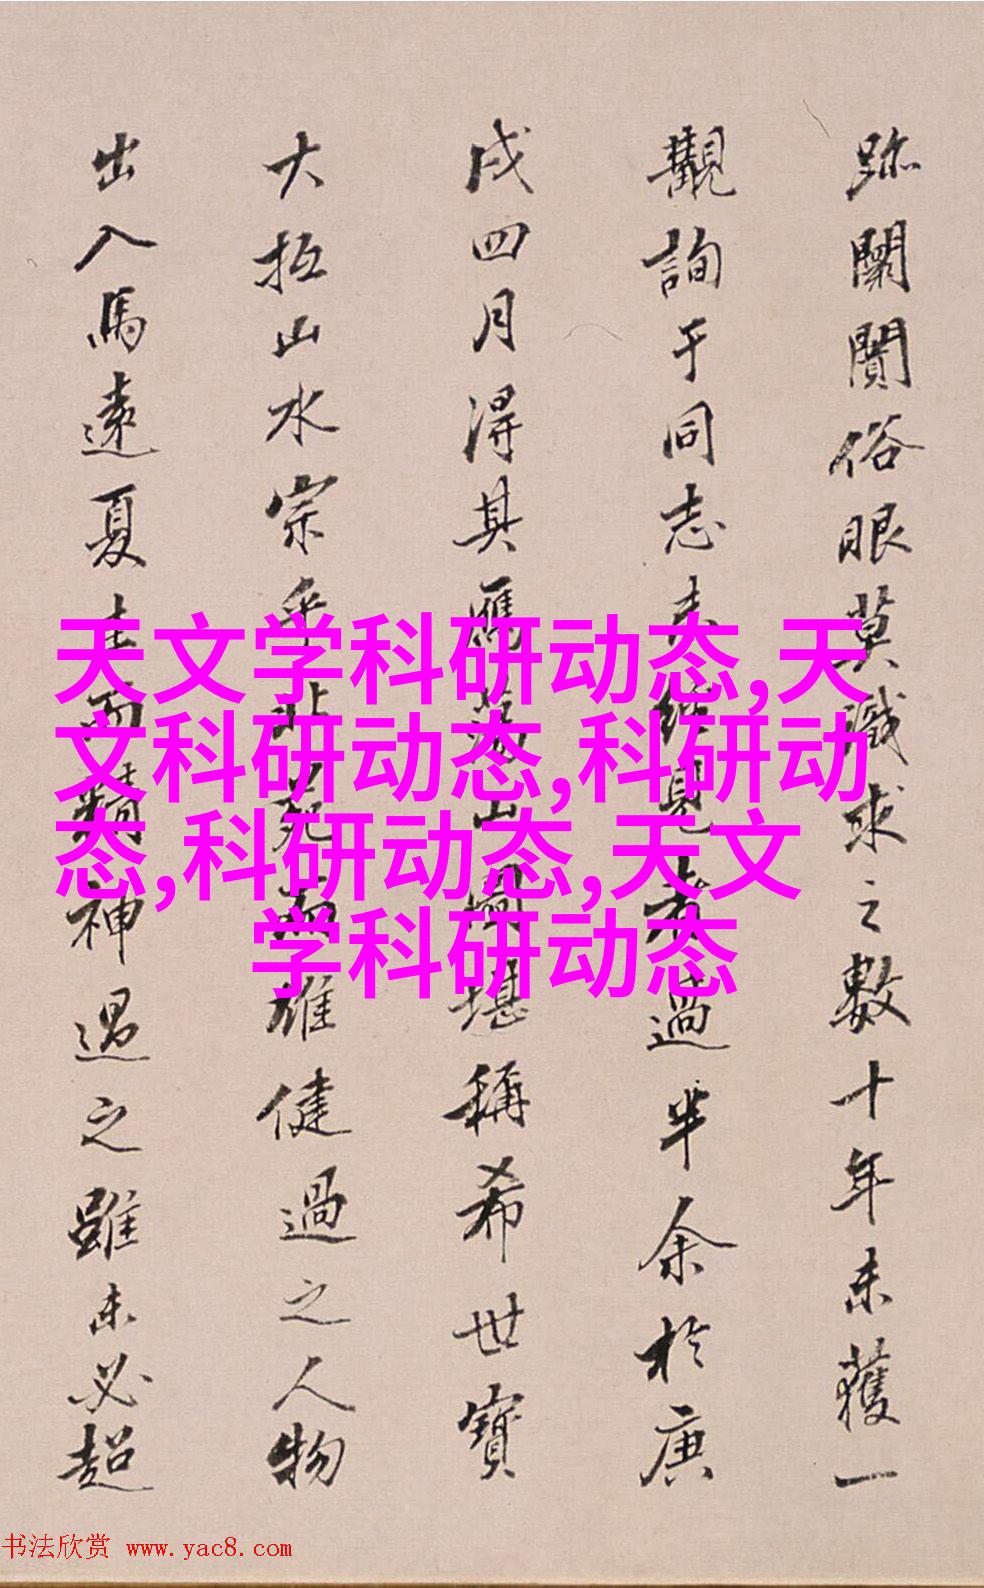 跡闤闠俗眼莫識求之數十年未獲一
觀詢于同志未經見者過半余於庚
戌四月得其鴈蕩山圖堪稱希世寶
大抵山水宗乎北苑而雄健過之人物
出入馬遠夏圭而精神過之雖未必超
天文学科研动态,天
文科研动态,科研动
态,科研动态,天文
学科研动态
书法欣赏 www.yac8.com